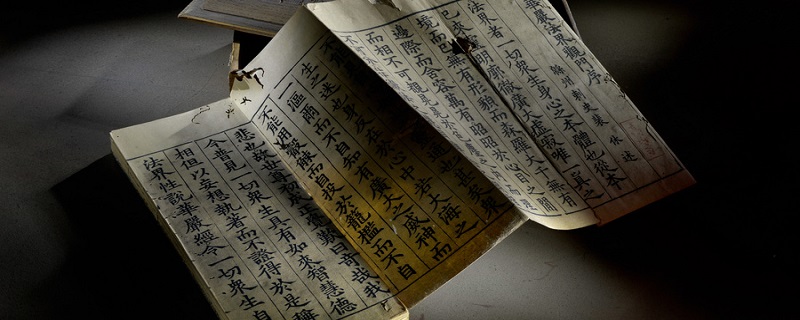 華嚴法界觀門序
綿州刺史裴休述
法界者一切衆生身心之本體也從本
明廓徹廣大虛寂唯一真之
境而已無有形貌而森羅大千無有
邊際而含容萬有昭昭於心目之間
而相不可
通也甚矣衆
生之迷也身反在於心中若大海之
一漚爾而不自知有廣大之威神而
不能用觳觫而自投於籠檻而不自
悲也故世歎曰奇哉我
今普見一切衆生具有如來智慧德
相但以妄想執著而不證得於是稱
法界性說華嚴經令一切衆生自